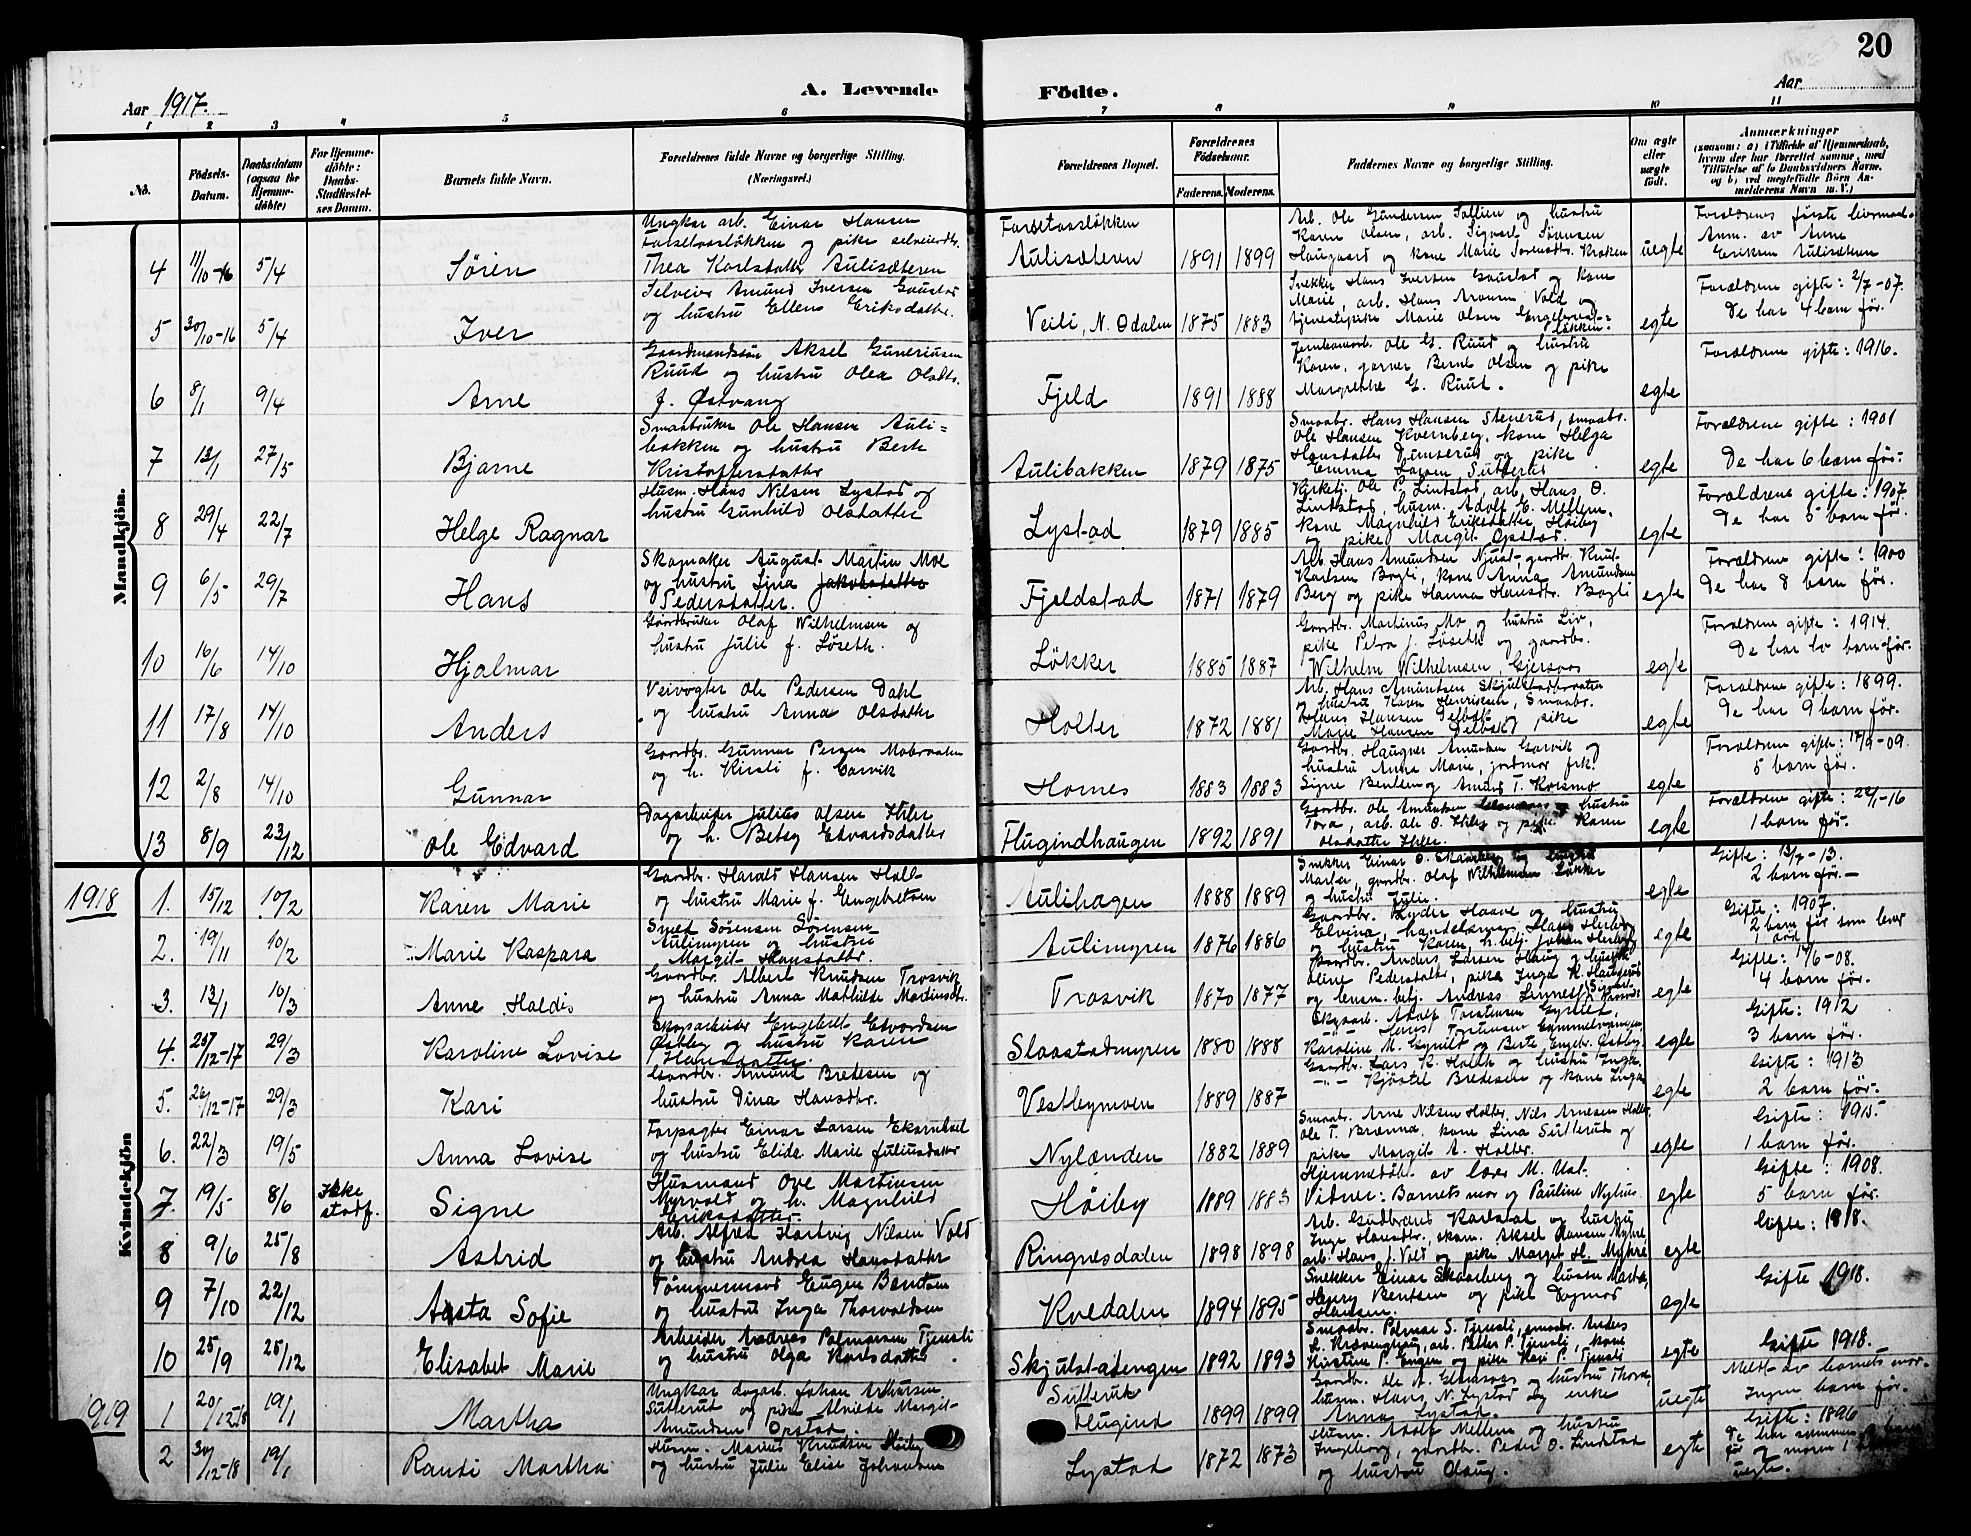 20
Aar 1917.
A. Levende Födte.
Aar
1 2 3 4 5 6 7 8 9 10 11
No.
Födsels-Datum.
Daabsdatum (ogsaa for Hjemmedöbte)
For Hjemmedöbte: Daabs-Stadfæstelses Datum.
Barnets fulde Navn.
Forældrenes fulde Navne og borgerlige Stilling. (Næringsvei.)
Forældrenes Bopæl.
Forældrenes Födselsaar.
Faderens. Moderens.
Faddernes Navne og borgerlige Stilling.
Om ægte eller uægte födt.
Anmærkninger
(saasom: a) i Tilfælde af Hjemmedaab, hvem der har forrettet samme, med Tilföielse af to Daabsvidners Navne, og b) ved uægtefödte Börn Anmelderens Navn m. V.)
Mandkjön.
4 11/10-16 5/4 Søren
Ungkar arb. Einar Hansen
Farsetvasløkken og pike selveierdtr.
Thea Karlsdatter Aulisæteren
Aulisæteren 1891 1899
Arb. Ole Gundersen Sollien og hustru
Karen Olsen, arb. Sigvart Sørensen
Haugaard og kone Marie
uegte
Anm. av Anne
Eriksen Aulisæteren
5 30/10-16 5/4 Iver
Selveier Amund Iversen Gaustad
og hustru Ellen Eriksdatter.
Veili, N. Odalen 1875 1883
Snekker Hans Iversen Gaustad og kone
Marie, arb. Hans Vold og
tjenestepike Marie Olsen Engebret-
løkken.
egte
Forældrene gifte: 2/7-07.
De har 4 barn før.
6 8/1 9/4 Arne
Gaardmandssøn Aksel Guneriusen
Ruud og hustru Olea Olsdtr.
f. Østvang
Fjeld 1891 1888
Ole G. Ruud og hustru
Karen, Bernt Olsen og pike
Margrethe G. Ruud.
egte
Forældrene gifte: 1916.
7 12/1 27/5 Bjarne
Smaabruker Ole Hansen Auli=
bakken og hustru Berte
Kristoffersdatter
Aulibakken 1879 1875
Smaabr. Hans Hansen Stenerud, smaabr.
Ole Hansen Kvernberg, kone Helga
Hansdatter og pike
Emma Larsen Sutterud
egte
Forældrene gifte: 1901
De har 6 barn før.
8 29/4 22/7 Helge Ragnar
Husm. Hans Nilsen Lystad og
hustru Gunhild Olsdatter
Lystad 1879 1885
Kirketj. Ole P. Lindstad, arb. Hans O.
Lindstad, husm. Adolf E. Mellem,
kone Magnhild Eriksdatter Høiby
og pike Margit Opstad.
egte
Forældrene gifte: 1907
De har 5 barn før.
9 6/5 29/7 Hans
Skomaker August Martin Moe
og hustru Lina Jakobsdatter
Pedersdatter.
Fjeldstad 1871 1879
Arb. Hans Amundsen gardbr. Knut
Karlsen Bogli, kone Anna Amundsen
Berg og pike Hanna Hansdtr. Bogli
egte
Forældrene gifte: 1900
De har 8 barn før.
10 16/6 14/10 Hjalmar
Gaardbruker Olaf Wilhelmsen og
hustru Julie f. Løseth.
Løkker 1885 1887
Gaardbr. Martinus Mo og hustru Liv,
pike Petra J. Løseth og gaardbr.
Wilhelm Wilhelmsen Gjersøos
egte
Forældrene gifte: 1914.
De har to barn før.
11 17/8 14/10 Anders
Veivogter Ole Pedersen Dahl
og hustru Anna Olsdatter
Holter 1872 1881
Arb. Hans Amundsen Skjulstadbraaten
og hustru Karen Henriksen, Smaabr.
Hans Hansen Delbæk og pike
Marie Hansen Delbæk
egte
Forældrene gifte: 1899.
De har 9 barn før.
12 2/8 14/10 Gunnar
Gaardbr. Gunnar Persen Mobraaten
og h. Kirsti f. Garvik
Hornes 1883 1883
Gaardbr. Haagner Amundsen Garvik og
hustru Anne Marie, jordmor frk.
Signe Bentsen og Amund T. Korsmo
egte
Forældrene gifte: 17/9-09.
5 barn før.
13 8/9 23/12 Ole Edvard
Dagarbeider Julius Olsen Ihler
og h. Betsy Edvardsdatter
Flugindhaugen 1892 1891
Gaardbr. Ole Amundsen og hustru
Tora, arb. Ole O. Ihler og pike Karen
Olsdatter Ihler.
egte
Forældrene gifte: 22/1-16
1 barn før.
1918
Kvindekjön
1. 15/12 10/2 Karen Marie
Gaardbr. Harald Hansen Holl
og hustru Marie f. Engebretsen
Aulihagen 1888 1889
Snekker Einar O. Skaarberg og hustru
Marta, gaardbr. Olaf Wilhelmsen Løkker
og hustru Julie.
egte
Gifte: 13/7-13.
2 barn før.
2. 19/11 10/2 Marie Kaspara
Smed Sørensen Sørensen
Aulimyren og hustru
Margit Hansdatter.
Aulimyren 1876 1886
Gaardbr. Lyder Haave og hustru
Elvina, Hans Herberg
og hustru Karen, h.betj. Johan Herberg
egte
Gifte: 1907.
2 barn før som lever
1 død
3. 13/1 10/3 Anne Haldis
Gaardbr. Albert Knudsen Trosvik
og hustru Anna Mathilde Martinsdtr.
Trosvik 1870 1877
Gaardbr. Anders Larsen Haug og hustru
Oline Pedersdatter, pike Inga K. Haugerud
og lensm. betj. Andreas Linnes
egte
Gifte: 14/6-08.
4 barn før.
4. 25/12-17 29/3 Karoline Lovise
Skogsarbeider Engebrett Edvardsen
Østby og hustru Karen
Hansdatter.
Slaastadmyren 1880 1888
Skogsarb. Adolf Torstensen Gynild,
Karoline M. Gynild og Berte Engebr. Østby.
egte
Gifte: 1912
3 barn før.
5. 26/12-17 29/3 Kari
Gaardbr. Amund Bredesen og
hustru Dina Hansdtr.
Vestbymoen 1889 1887
Gaardbr. Lars K. Holth og hustru Inga
-"- Kjøstel Bredesen og kone Inga
egte
Gifte: 1913
2 barn før.
6. 22/3 19/5 Anna Lovise
Forpagter Einar Larsen Ekornhoel
og hustru Elida Marie Juliusdatter
Nylænden 1882 1889
Smaabr. Arne Nilsen Holter, Nils Arnesen Holter,
Ole T. Brænna, kone Lina Sutterud og
pike Margit A. Holter.
egte
Gifte: 1915
1 barn før.
7. 19/5 8/6 Ikke stadf. Signe
Husmand Ove Martinsen
Myrvold og h. Magnhild
Eriksdatter.
Høiby 1889 1883
Hjemmedøbt av M.
Vidner: Barnets mor og Pauline Nyhus
egte
Gifte: 1908.
5 barn før.
8 9/6 25/8 Astrid
Arb. Alfred Hartvig Nilsen Vold
og hustru Andrea Hansdatter
Ringnesdalen 1898 1898
Arb. Gudbrand Karlstad og hustru
Inga Hansdtr., skom. Aksel Hansen Myhre,
arb. Hans J. Vold og pike Margit H. Myhre
egte
Gifte: 1918.
9 7/10 22/12 Aasta Sofie
Tømmermand Eugen Berntsen
og hustru Inga Thorvaldsen
Kvedalen 1894 1895
Snekker Einar Skaarberg og hustru Marta,
Henry Bentsen og pike Dagmar
Hansen.
egte
Gifte 1918.
10 25/9 25/12 Elisabet Marie
Arbeider Andreas Palmersen Tjensli
og hustru Olga Karlsdatter.
Skjulstadengen 1892 1893
Smaabr. Palmar S. Tjensli, smaabr. Anders
arb. Peder P. Tjensli, kone
Kristine P. Engen og pike Kari P. Tjensli
egte
Gifte 1918.
1919
1 20/12-18 19/1 Martha
Ungkar dagarb. Johan Arthursen
Sutterud og pike Alvilde Margit
Amundsen Opstad.
Sutterud
Flugind 1899 1899
Gaardbr. Ole A. Glemsaas og hustru Thora,
husm. Hans N. Lystad og enke
Anna Lystad.
uegte
Meldt av barnets mor.
Ingen barn før.
2 30/12-18 19/1 Randi Martha
Husm. Marius Knudsen Høiby
og hustru Julie Elise Johansen
Lystad 1872 1873
Husm. Adolf Mellem og hustru
Ingeborg, gaardbr. Peder O. Lindstad
og hustru Olaug.
egte
Gifte: 1896
De har sammen 9 barn
før og moren 1
uegte.